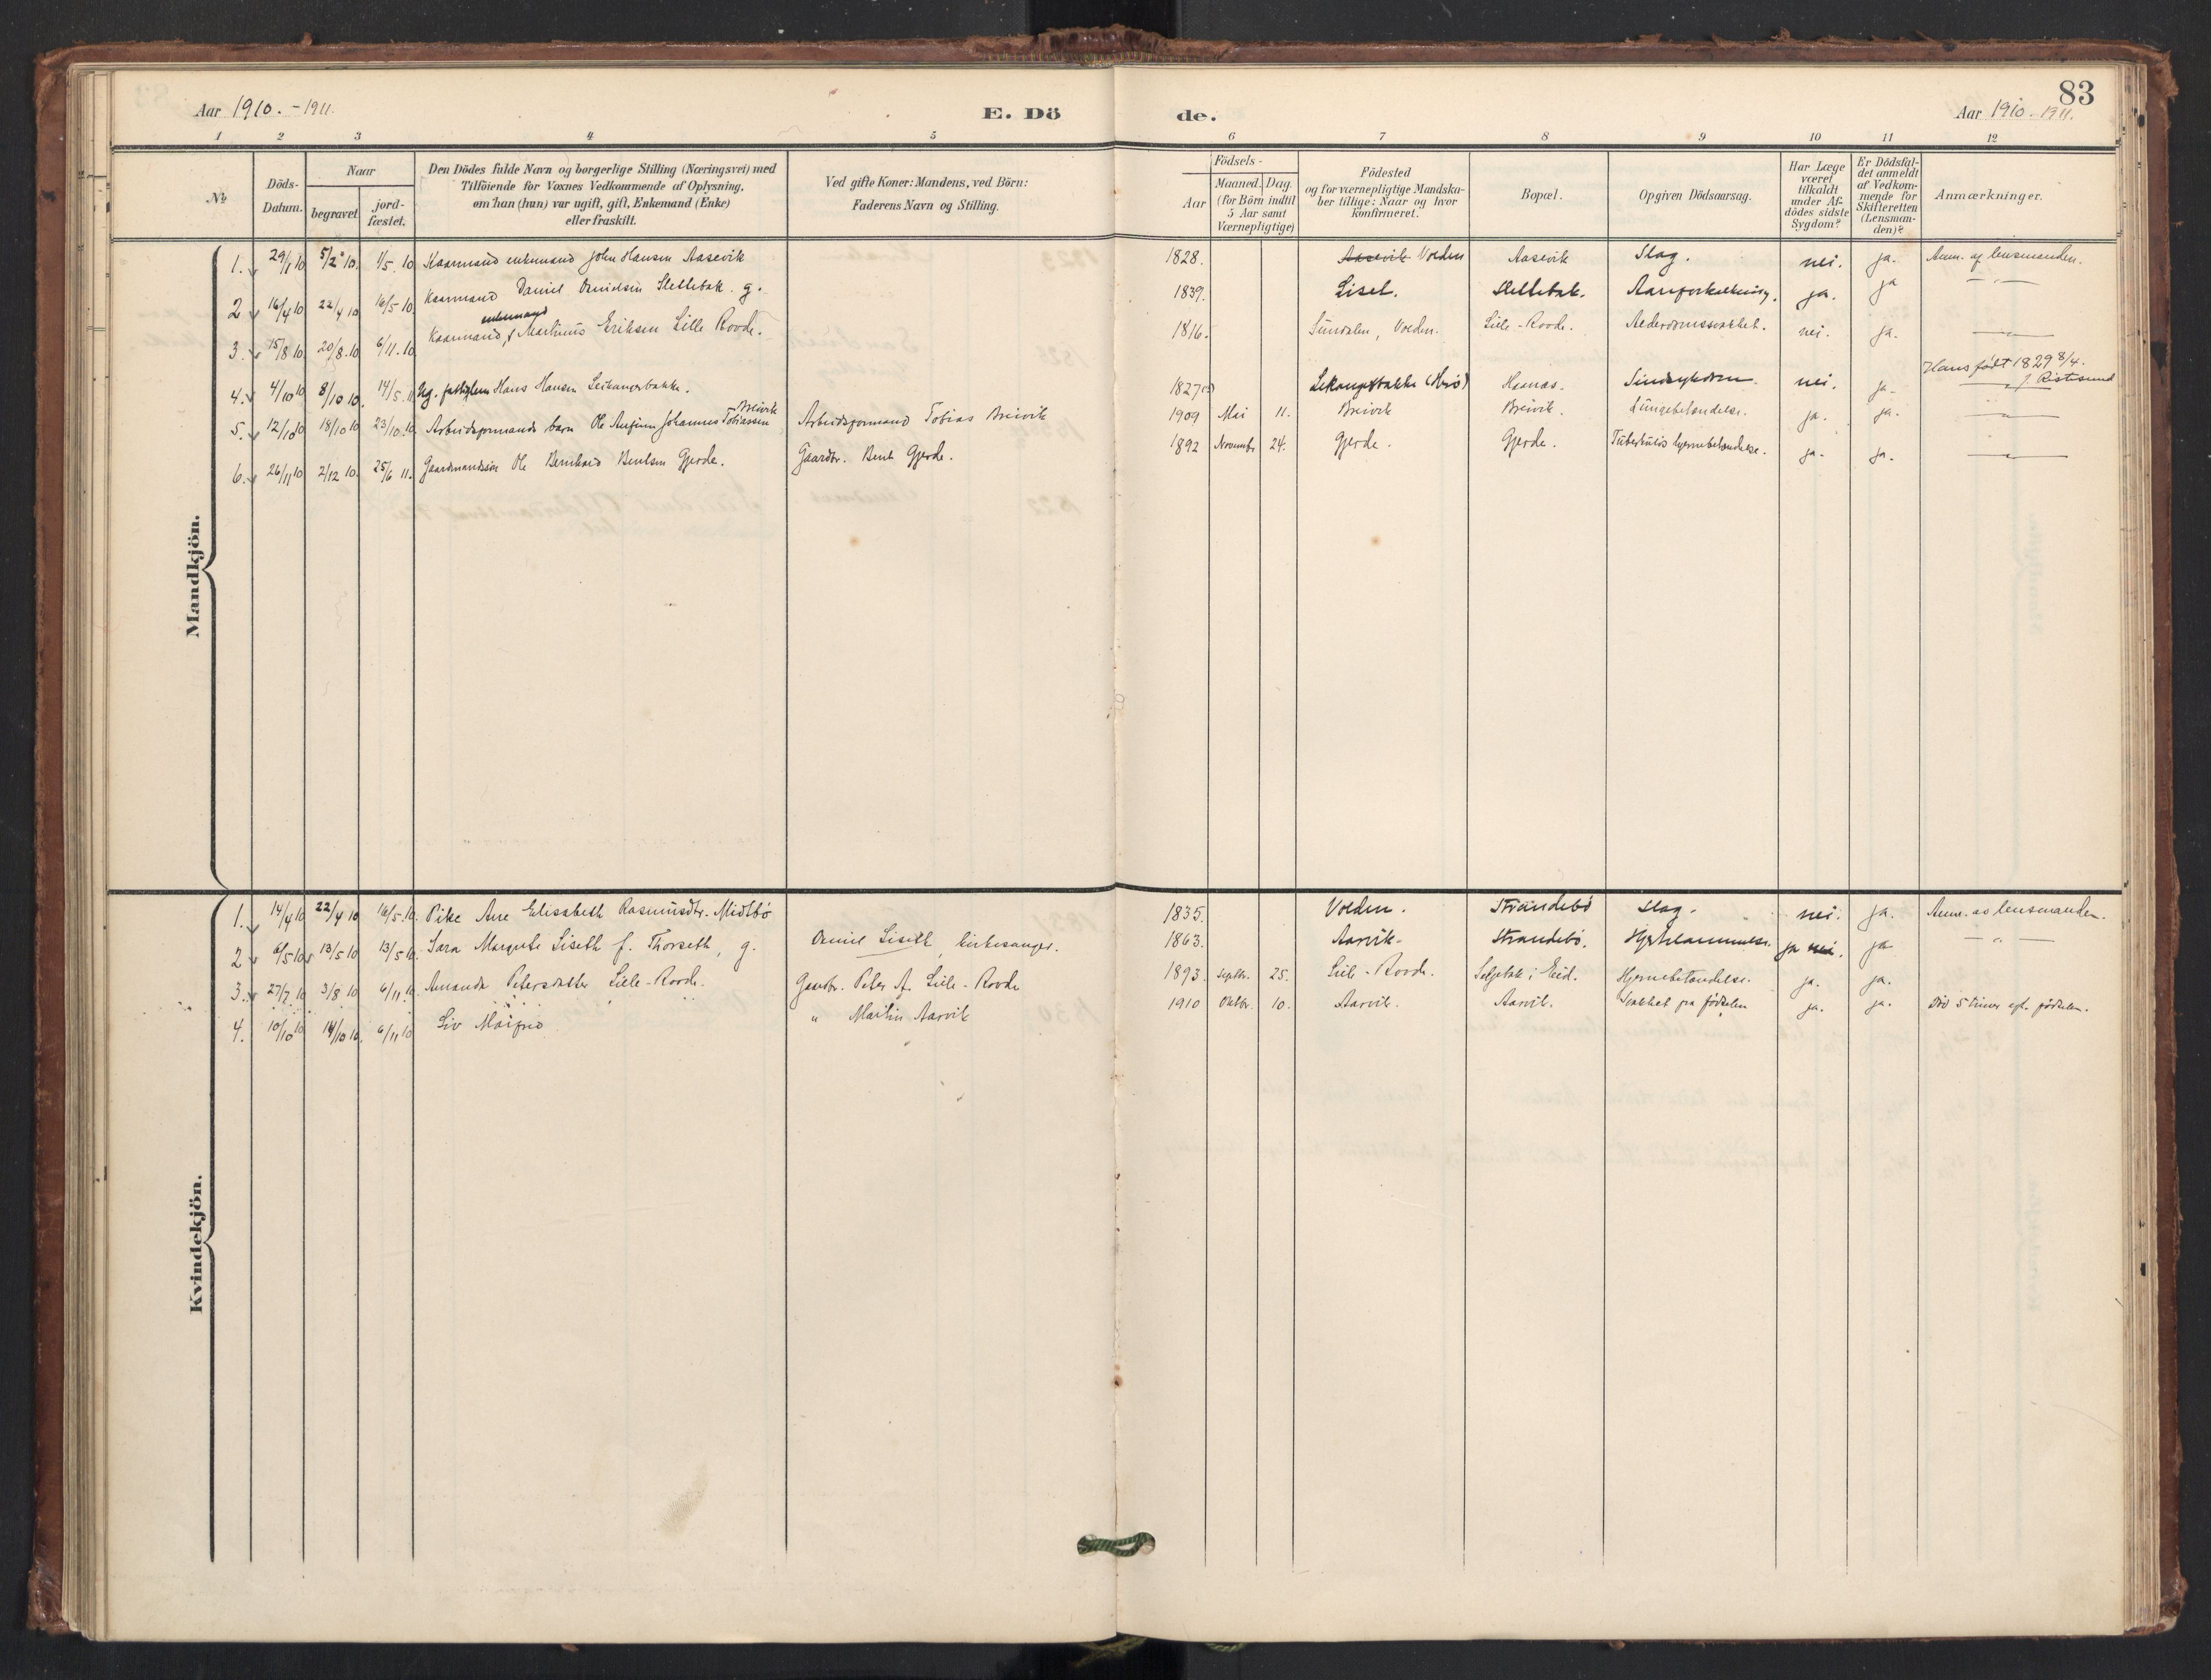 83
Aar 1910. - 1911.
E. Dö
de.
Aar 1910 - 1911.
1 2 3 4 5 6 7 8 9 10 11 12
№
Döds-Datum.
Naar
begravet.
jord-fæstet.
Den Dödes fulde Navn og borgerlige Stilling (Næringsvei) med
Tilföiende for Voxnes Vedkommende af Oplysning,
om han (hun) var ugift, gift, Enkemand (Enke)
eller fraskilt.
Ved gifte Koner: Mandens, ved Börn:
Faderens Navn og Stilling.
Födsels-
Aar
Maaned. Dag.
(for Börn indtil
5 Aar samt
Værnepligtige)
Födested
og for værnepligtige Mandska-
ber tillige: Naar og hvor
konfirmeret.
Bopæl.
Opgiven Dödsaarsag.
Har Læge
været
tilkaldt
under Af-
dödes sidste
Sygdom?
Er Dödsfal-
det anmeldt
af Vedkom-
mende for
Skifteretten
(Lensman-
den)?
Anmærkninger.
Mandkjön.
1. 29/1 10 5/2 10. 1/5. 10 Kaarmand enkemand John Hansen Aasevik 1828. Aasevik Volden Aasevik Slag. nei. ja. Anm. af lensmanden.
2 16/4 10 22/4 10 16/5. 10 Kaarmand Daniel Slettebak. g. 1839. Liset. Slettebak. Aareforkalkning. ja. ja — " —
3. 15/8 10. 20/8. 10 6/11. 10 Kaarmand, enkemand Martinus Eriksen Lille Rovde. 1816. Sundalen, Volden. Lille-Rovde. Alderdomssvakhet. nei. ja. — " —
4. 4/10 10 8/10 10. 14/5. 11 Ug. fattiglem Hans Hansen Leikangerbakke. 1827 Leikangerbakke (Herö) Haanæs. Sindssykdom. nei. ja. Hans født 1829 8/4.
5. 12/10 10 18/10 10 23/10. 10 Arbeidsformands barn Ole Johannes Tobiassen Breivik Arbeidsformand Tobias Breivik 1909 Mai 11. Breivik Breivik. Lungebetændelse. ja. ja. — " —
6. 26/11 10 2/12 10. 25/6 11. Gaardmandssön Ole Bernhard Bentsen Gjerde. Gaardbr. Bent Gjerde. 1892 Novembr 24. Gjerde. Gjerde. Tuberkuløs hjernebetændelse. ja. ja. — " —
Kvindekjön.
1. 14/4 10 22/4 10 16/5. 10. Pike Ane Elisabeth Rasmusdtr. Midtbö 1835. Volden. Strandebö Slag. nei. ja. Anm. av lensmanden.
2 6/5 10 13/5 10 13/5 10. Sara Margrete Liseth f. Thorseth, g. Daniel Liseth, kirkesanger. 1863. Aarvik. Strandebö. Hjertelammelse. ja nei. ja — " —
3. 27/7 10 3/8 10 6/11 10. Amanda Petersdatter Lille-Rovde. Gaardbr. Peter A. Lille-Rovde 1893. Septbr. 25. Lille-Rovde. Seljebak i Eid. Hjernebetændelse. ja. ja.
4. 10/10 10 14/10 10. 6/11 10 Liv Maifrid " Martin Aarvik 1910 Oktbr. 10. Aarvik. Aarvik. Svakhet fra fødselen ja. ja. Död 5 timer eft. fødselen.